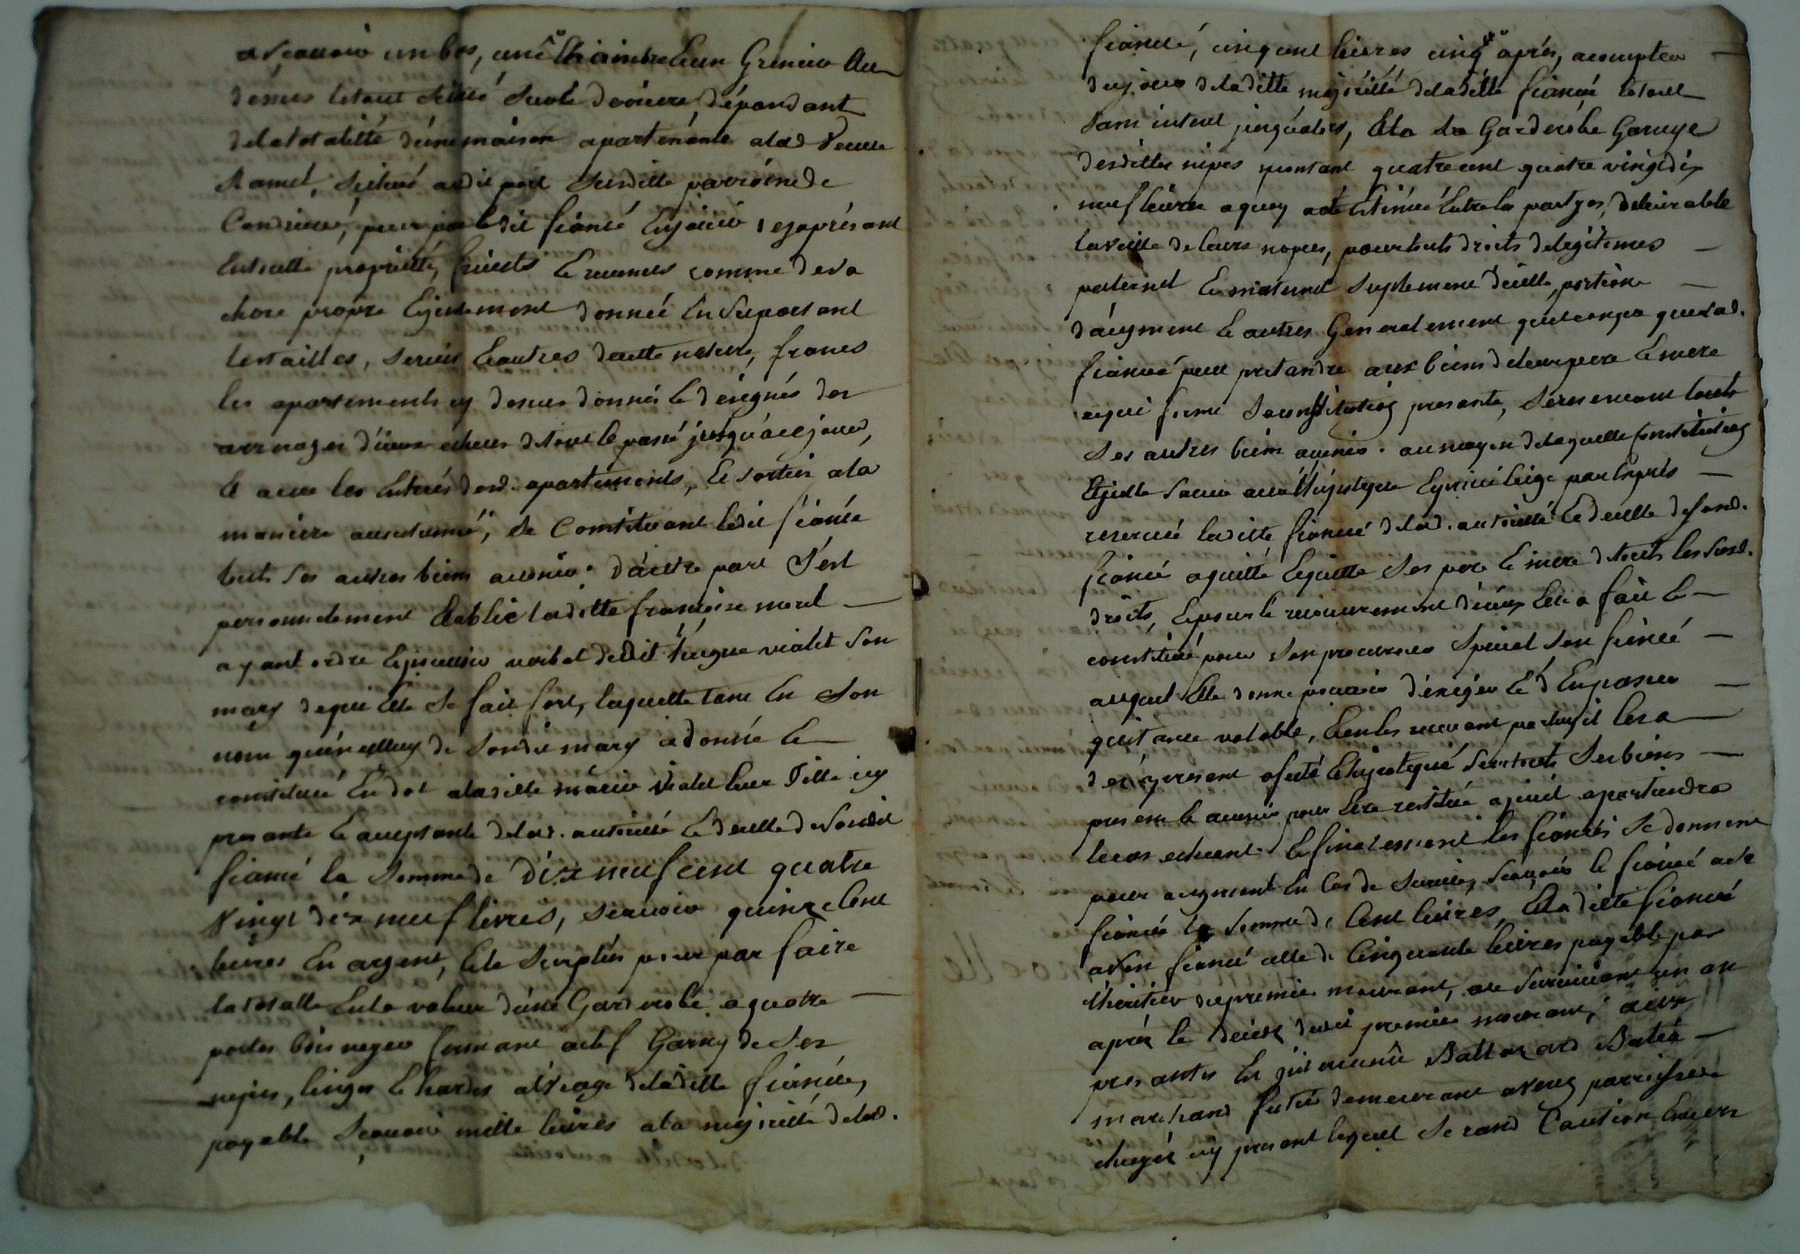 a Scavoir un bas, une Chambre & un Grenier Au
dessus le tout scitué sur le derriere, dépandant
de la totalitté d'une maison apartenante alad. Veuve
Ramel, scitué audit port susditte parroisse de
Condrieu, pour par ledit fiancé En jouir des aprésant
En toutte proprietté, fruits & revenues comme de sa
chose propre Egualement donnée En suportant
les tailles, servis & autres de cette nature, francs
les apartements cy dessus donnés & designés des
arrerages d'iceux echeus de tout le passé jusqu'à ce jour,
& avec les Entrés desd. apartements, & sorties ala
maniere accoutumé, se Constituant ledit fiancé
tous ses autres biens avenir. D'autre part S'est
personnelement Etablie laditte françoise morel
ayant ordre & pouvoir verbal dudit hugue vialet Son
mary de qui Elle se fait fort, laquelle tant En Son
nom qu'en celluy de Sondit mary a donné &
constitué En dot aladitte marie vialet leur fille icy
presante & acceptante de lad. autorité & de celle de Sondit
fiancé la Somme de Dix neuf cent quatre
Vingt dix neuf livres, scavoir quinze Cent
livres En argent, & le surplus pour par faire
la totalle En la valeur d'une Garderobe a quatre
portes bois noyer fermant a clef Garny de Ses
nipes, linges & hardes al'usage de laditte fiancée,
payable Scavoir mille livres ala majorité de lad.
fiancée, cinq cent livres cinq ans aprés, acompter
du jour de laditte majorité de laditte fiancée le tout
sans interet jusqu'alors, & la Garderobe Garnye
desdittes nipes montant quatre cent quatre vingt dix
neuf livres aquoy a été Estimée Entre les partyes, delivrable
la veille de leurs nopces, pour touts droits de legitimes
paternel & maternel suplement d'icelle, portion
d'augment & autres Generalement quelconque que lad.
fiancée peut pretandre aux biens de leur pere & mere
ce qui forme sa constitution presante, se reservant touts
ses autres biens avenir. au moyen de laquelle Constitution
reservée laditte fiancée de lad. autorité & de celle de sond.
fiancé a quitté & quitte Ses pere & mere de touts les susd.
droits, & pour le recouvrement d'iceux Elle a fait &
constitué pour Son procureur Special Son fiancé
auquel Elle donne pouvoir d'exiger & d'En passer
quittance valable, & en les recevant par luy il les a
dez àpresent assuré & hipotequé sur touts Ses biens
presents & avenir pour Etre restitué a qui il apartiendra
le cas echeant. & finalement les fiancés se donnent
pour augment En Cas de Survie, Scavoir le fiancé a sa
fiancée la Somme de Cent livres, & laditte fiancée
a son fiancé celle de Cinquante livres payable par
l'heritier du premier mourant, au survivant un an
aprés le décéz dudit premier mourant, aux
presantes En juit
marchand futié demeurant aveuq parroisse
icy present lequel se rand Caution Envers